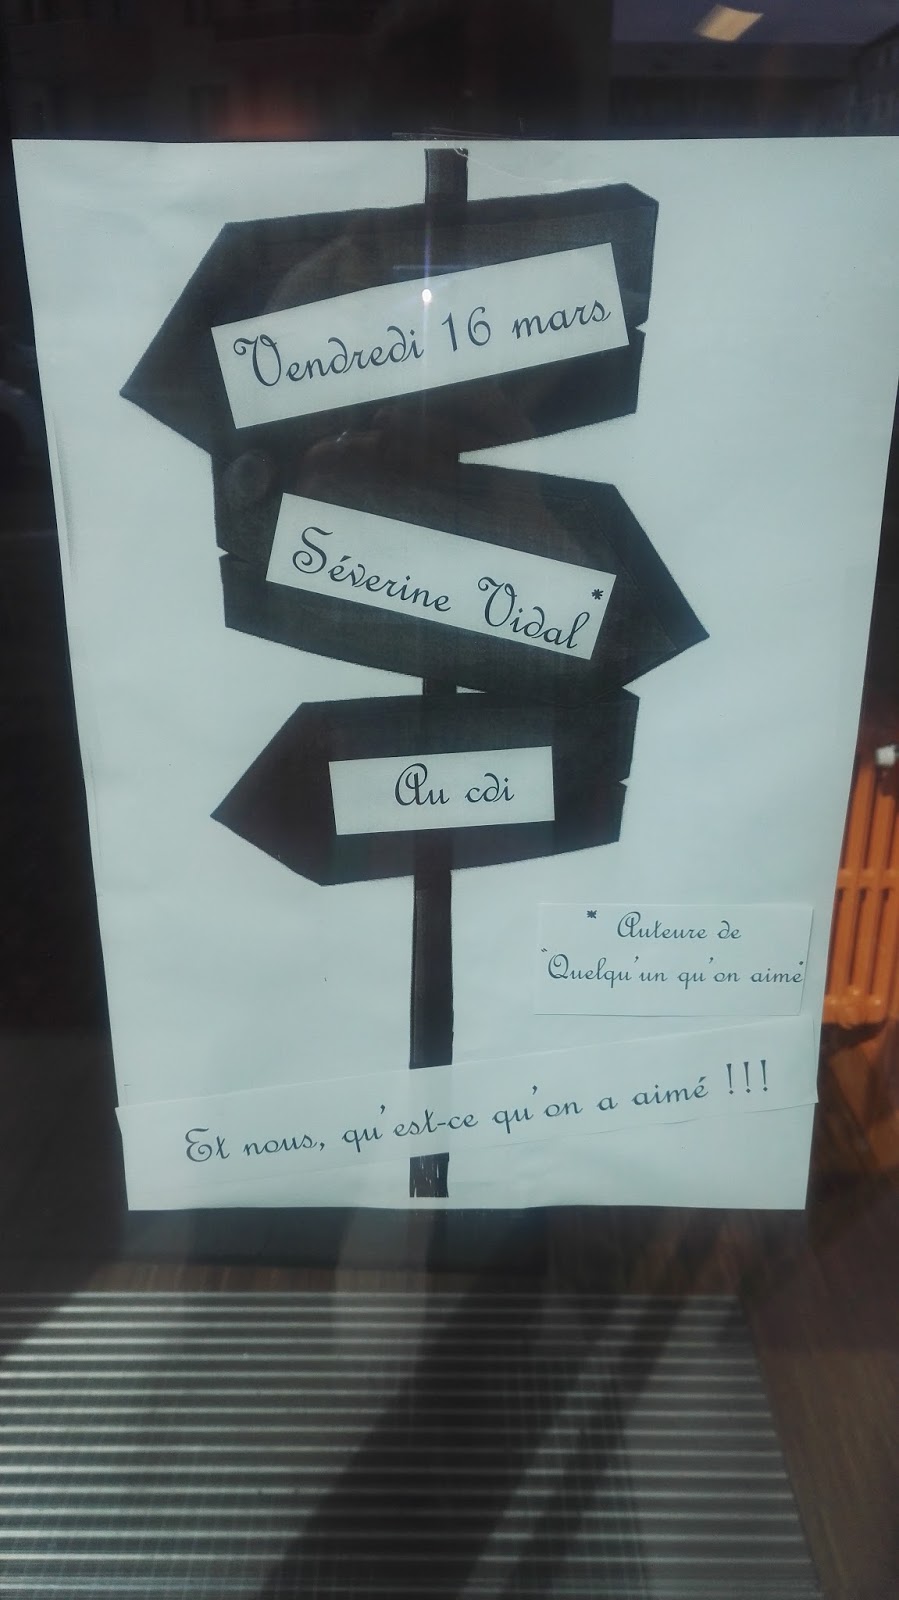 Vendredi 16 mars
Séverine Vidal*
Au cdi
* Auteure de
"Quelqu'un qu'on aime"
Et nous, qu'est-ce qu'on a aimé !!!